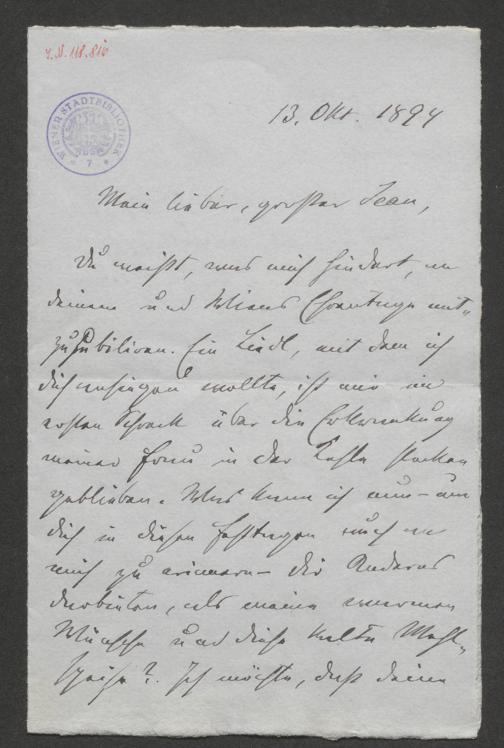 I.N. 118.816
WIENER STADTBIBLIOTHEK
13. Okt. 1894
Mein lieber, großer Jean,
Du weißt, was mich hindert, an
Deinem und Wiens Ehrentage mit-
zujubiliren. Ein Liedl, mit dem ich
Dich ansingen wollte, ist mir im
ersten Schreck über die Erkrankung
meiner Frau in der Kehle stecken
geblieben. Was kann ich nun – um
Dich in diesen Festtagen auch an
mich zu erinnern – Dir Anderes
darbieten, als meine warmen
Wünsche und diese kalte Mehl-
speise? Ich möchte, daß Deine